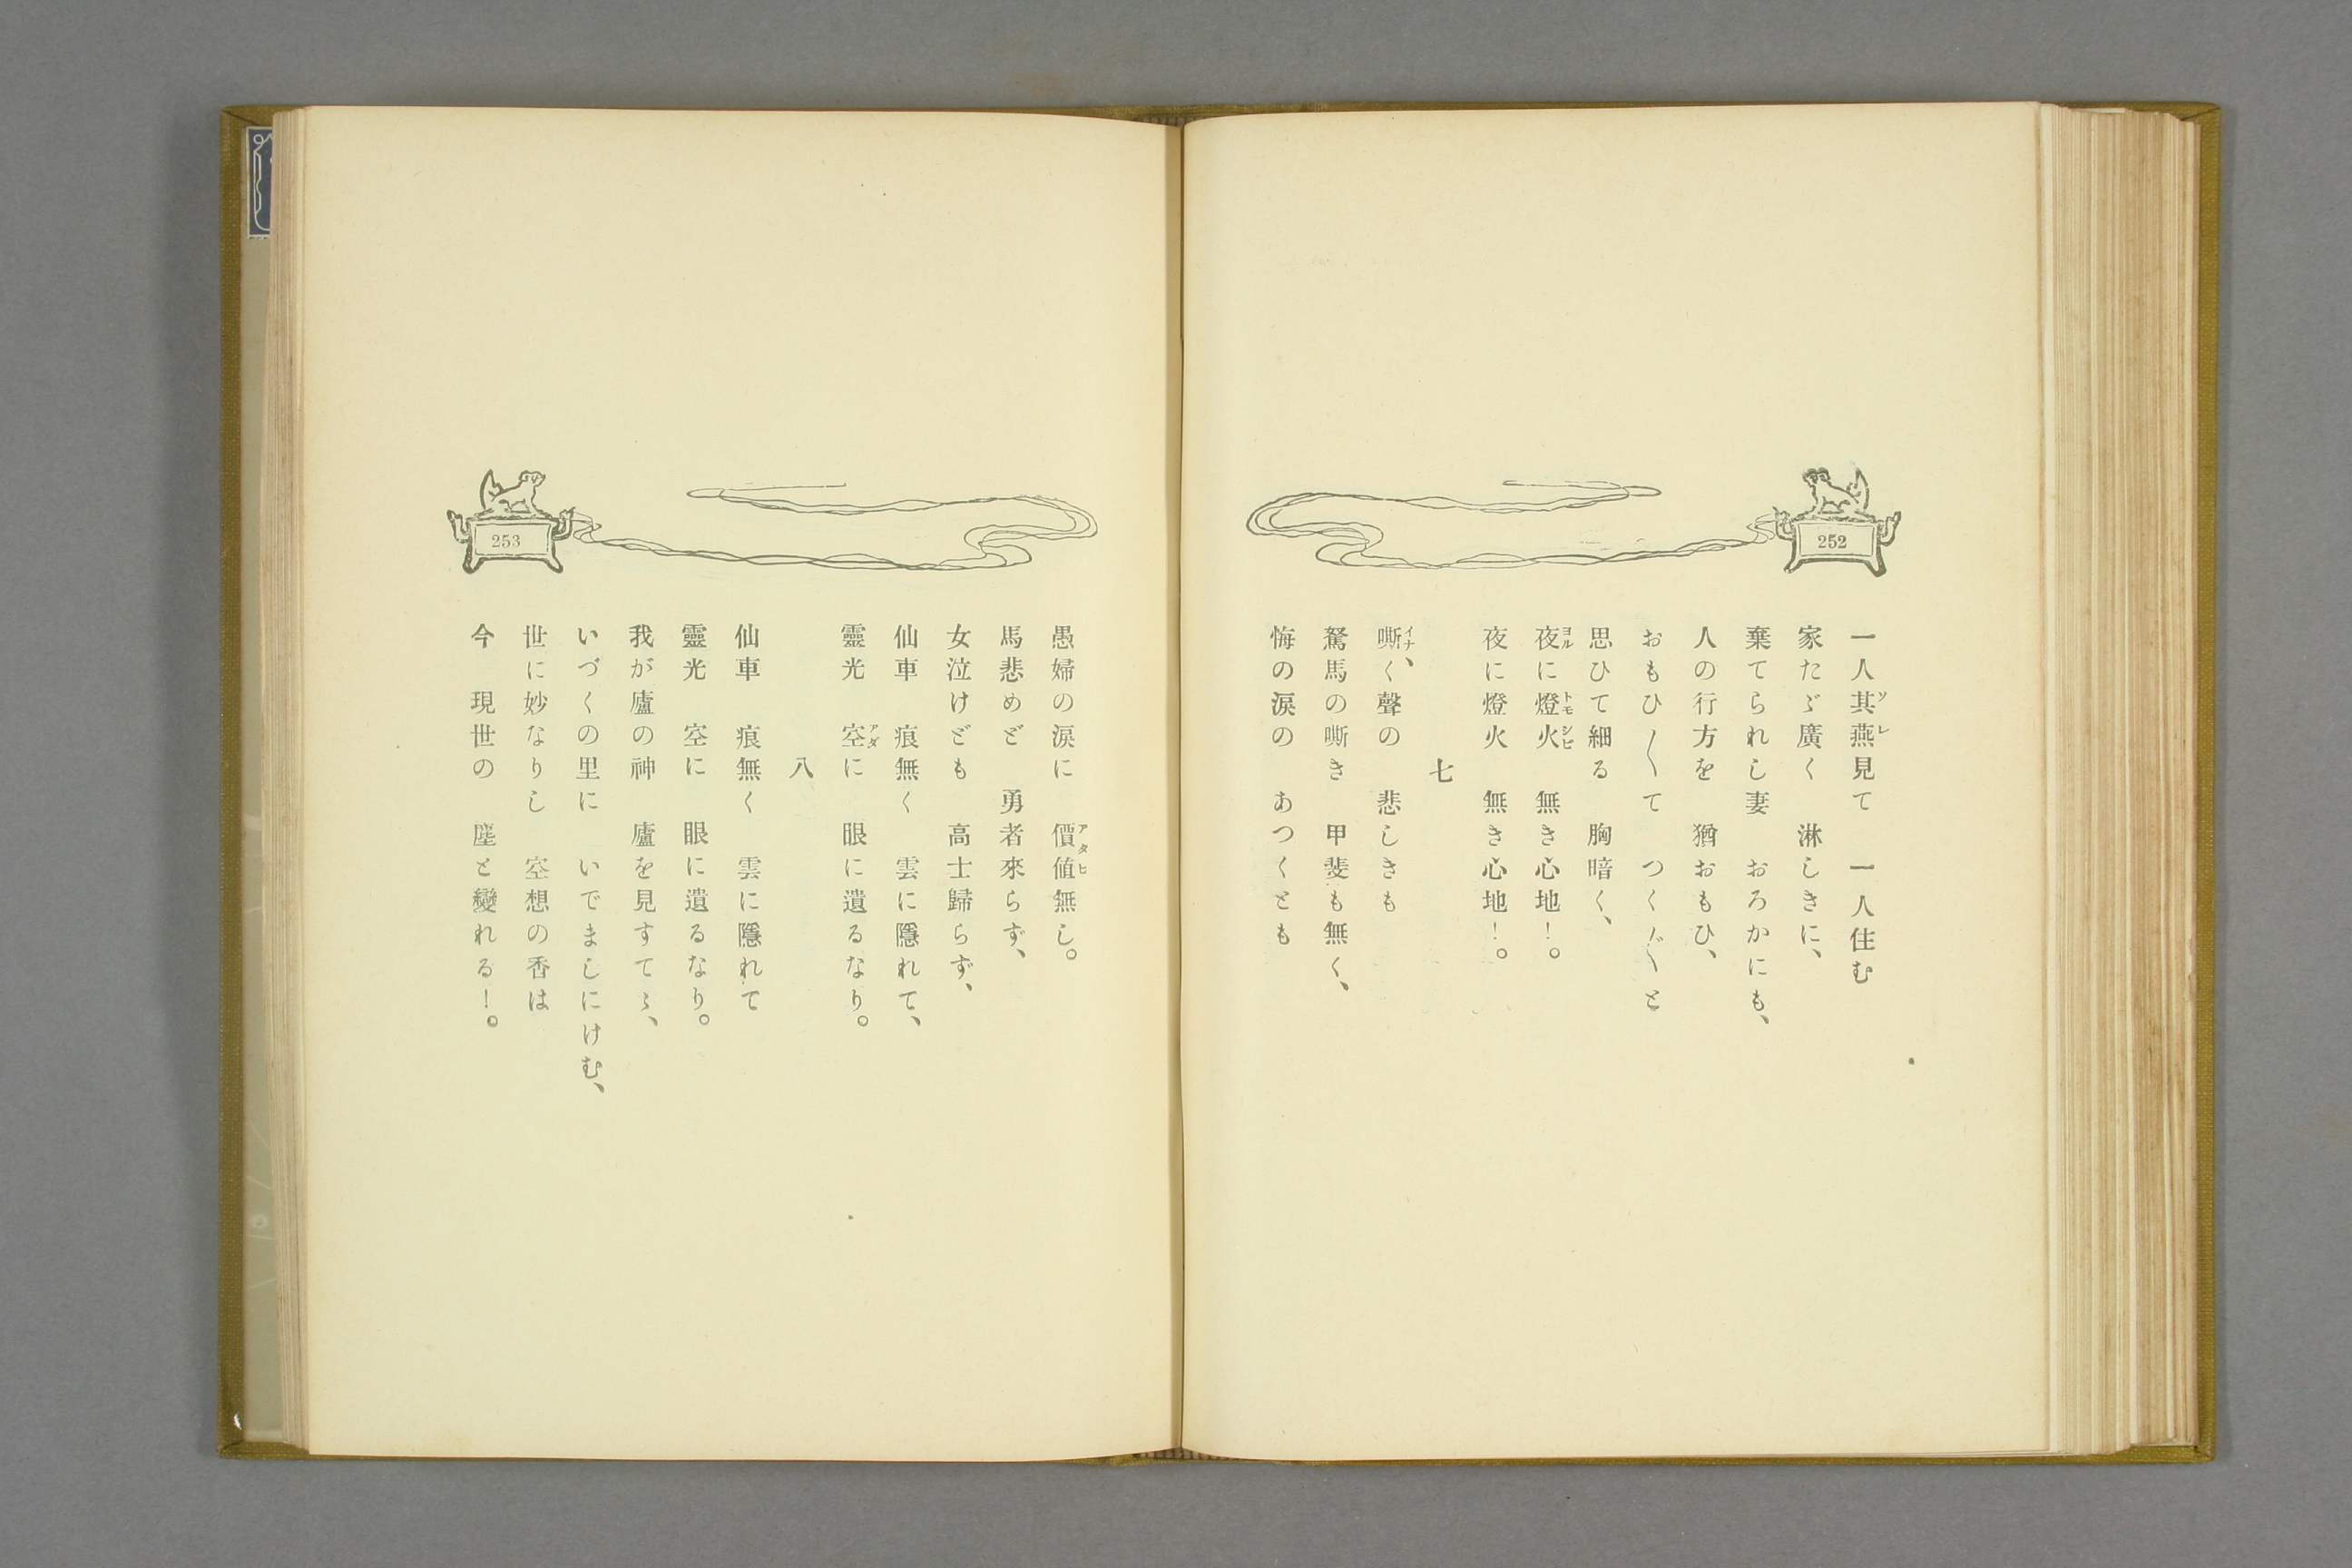 252
一人其燕見て　一人住む
家たゞ廣く　淋しきに、
棄てられし妻　おろかにも、
人の行方を　猶おもひ、
おもひ〳〵て　つく〴〵と
思ひて細る　胸暗く、
夜に燈火　無き心地！。
夜に燈火　無き心地！。
七
嘶く聲の　悲しきも
駑馬の嘶き　甲斐も無く、
悔の涙の　あつくとも
253
愚婦の涙に　價値無し。
馬悲めど　勇者來らず、
女泣けども　高士歸らず、
仙車　痕無く　雲に隱れて、
靈光　空に　眼に遺るなり。
八
仙車　痕無く　雲に隱れて
靈光　空に　眼に遺るなり。
我が廬の神　廬を見すてゝ、
いづくの里に　いでましにけむ、
世に妙なりし　空想の香は
今　現世の　塵と變れる！。